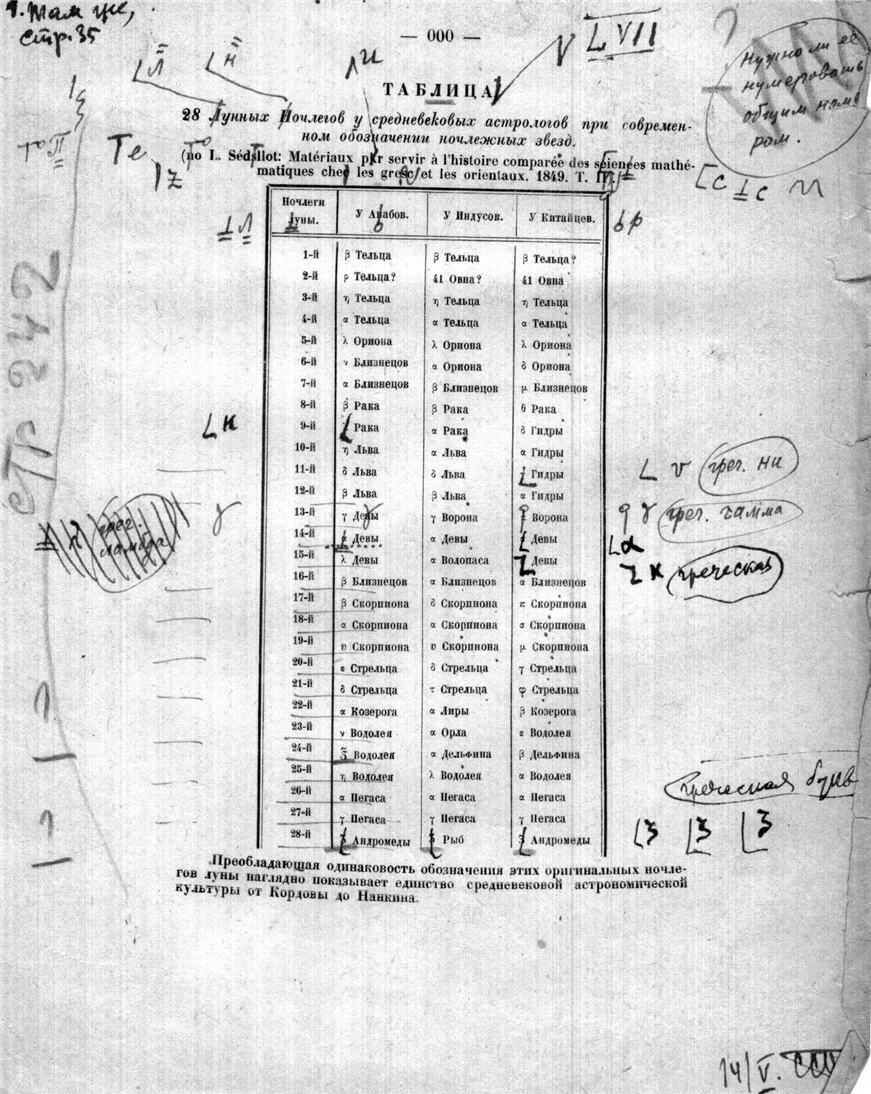 1. Там же,
стр. 35
— 000 —
LVII
Нужно ли её
нумеровать
общим номе
ром.
ТАБЛИЦА
28 Лунных Ночлегов у средневековых астрологов при современ-
ном обозначении ночлежных звезд.
(по L. Sédillot: Matériaux pour servir à l'histoire comparée des sciences mathé-
matiques chez les grecs et les orientaux. 1849. T. II.)
Ночлеги луны. У Арабов. У Индусов. У Китайцев.
1-й β Тельца β Тельца β Тельца?
2-й ρ Тельца? 41 Овна? 41 Овна
3-й η Тельца η Тельца η Тельца
4-й α Тельца α Тельца α Тельца
5-й λ Ориона λ Ориона λ Ориона
6-й ν Близнецов α Ориона δ Ориона
7-й α Близнецов β Близнецов μ Близнецов
8-й β Рака β Рака θ Рака
9-й Рака α Рака δ Гидры
10-й η Льва α Льва α Гидры
11-й δ Льва δ Льва Гидры
12-й β Льва β Льва α Гидры
13-й γ Девы γ Ворона Ворона
14-й Девы α Девы Девы
15-й λ Девы α Волопаса Девы
16-й β Близнецов α Близнецов α Близнецов
17-й β Скорпиона δ Скорпиона π Скорпиона
18-й α Скорпиона α Скорпиона σ Скорпиона
19-й υ Скорпиона υ Скорпиона μ Скорпиона
20-й ε Стрельца δ Стрельца γ Стрельца
21-й δ Стрельца τ Стрельца φ Стрельца
22-й α Козерога α Лиры β Козерога
23-й ν Водолея α Орла ε Водолея
24-й Водолея α Дельфина β Дельфина
25-й η Водолея λ Водолея α Водолея
26-й α Пегаса α Пегаса α Пегаса
27-й γ Пегаса γ Пегаса γ Пегаса
28-й Андромеды Рыб Андромеды
Преобладающая одинаковость обозначения этих оригинальных ночле-
гов луны наглядно показывает единство средневековой астрономической
культуры от Кордовы до Нанкина.
стр 242
греч. ни
греч. гамма
греч. ламбда
греческая
греческая букв
14/V.